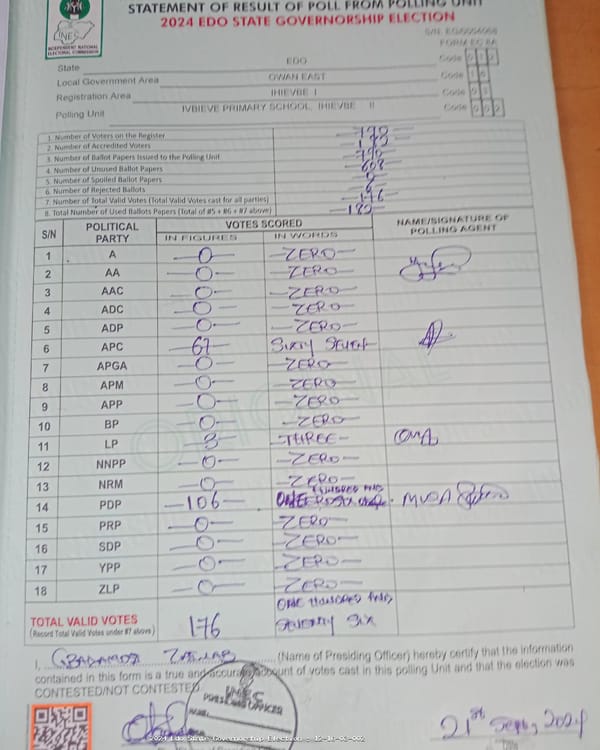 STATEMENT OF RESULT OF POLL FROM POLLING UNIT
2024 EDO STATE GOVERNORSHIP ELECTION
INEC
INDEPENDENT NATIONAL ELECTORAL COMMISSION
FORM EC 8A
State EDO Code
Local Government Area OWAN EAST Code
Registration Area IHIEVBE I Code
Polling Unit IVBIEVE PRIMARY SCHOOL, IHIEVBE II Code
1. Number of Voters on the Register
2. Number of Accredited Voters
3. Number of Ballot Papers Issued to the Polling Unit
4. Number of Unused Ballot Papers 608
5. Number of Spoiled Ballot Papers
6. Number of Rejected Ballots
7. Number of Total Valid Votes (Total Valid Votes cast for all parties) 176
8. Total Number of Used Ballots Papers (Total of #5 + #6 + #7 above)
S/N POLITICAL PARTY VOTES SCORED NAME/SIGNATURE OF POLLING AGENT
IN FIGURES IN WORDS
1 A 0 ZERO
2 AA 0 ZERO
3 AAC 0 ZERO
4 ADC 0 ZERO
5 ADP 0 ZERO
6 APC 67 SIXTY SEVEN
7 APGA 0 ZERO
8 APM 0 ZERO
9 APP 0 ZERO
10 BP 0 ZERO
11 LP 3 THREE
12 NNPP 0 ZERO
13 NRM 0 ZERO
14 PDP 106 ONE HUNDRED AND
15 PRP 0 ZERO
16 SDP 0 ZERO
17 YPP 0 ZERO
18 ZLP 0 ZERO
TOTAL VALID VOTES 176 ONE HUNDRED AND
(Record Total Valid Votes under #7 above) SEVENTY SIX
I, (Name of Presiding Officer) hereby certify that the information
contained in this form is a true and accurate account of votes cast in this polling Unit and that the election was
CONTESTED/NOT CONTESTED
INEC
PRESIDING OFFICER
21st Sept, 2024
2024 Edo State Governorship Election - 12-16-01-002